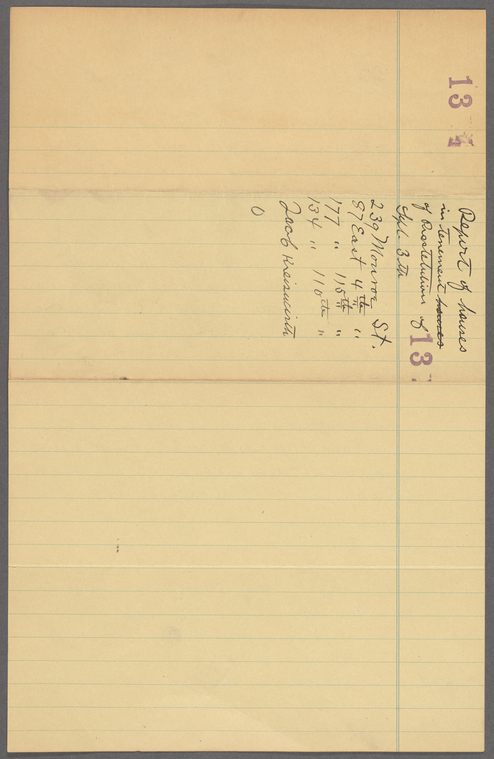 13
Report of houses
in tenement houses
of Prostitution of
Sept. 3th
13
239 Monroe St.
87 East 4th "
177 " 115th "
134 " 110th "
Jacob Kreiswirth
0